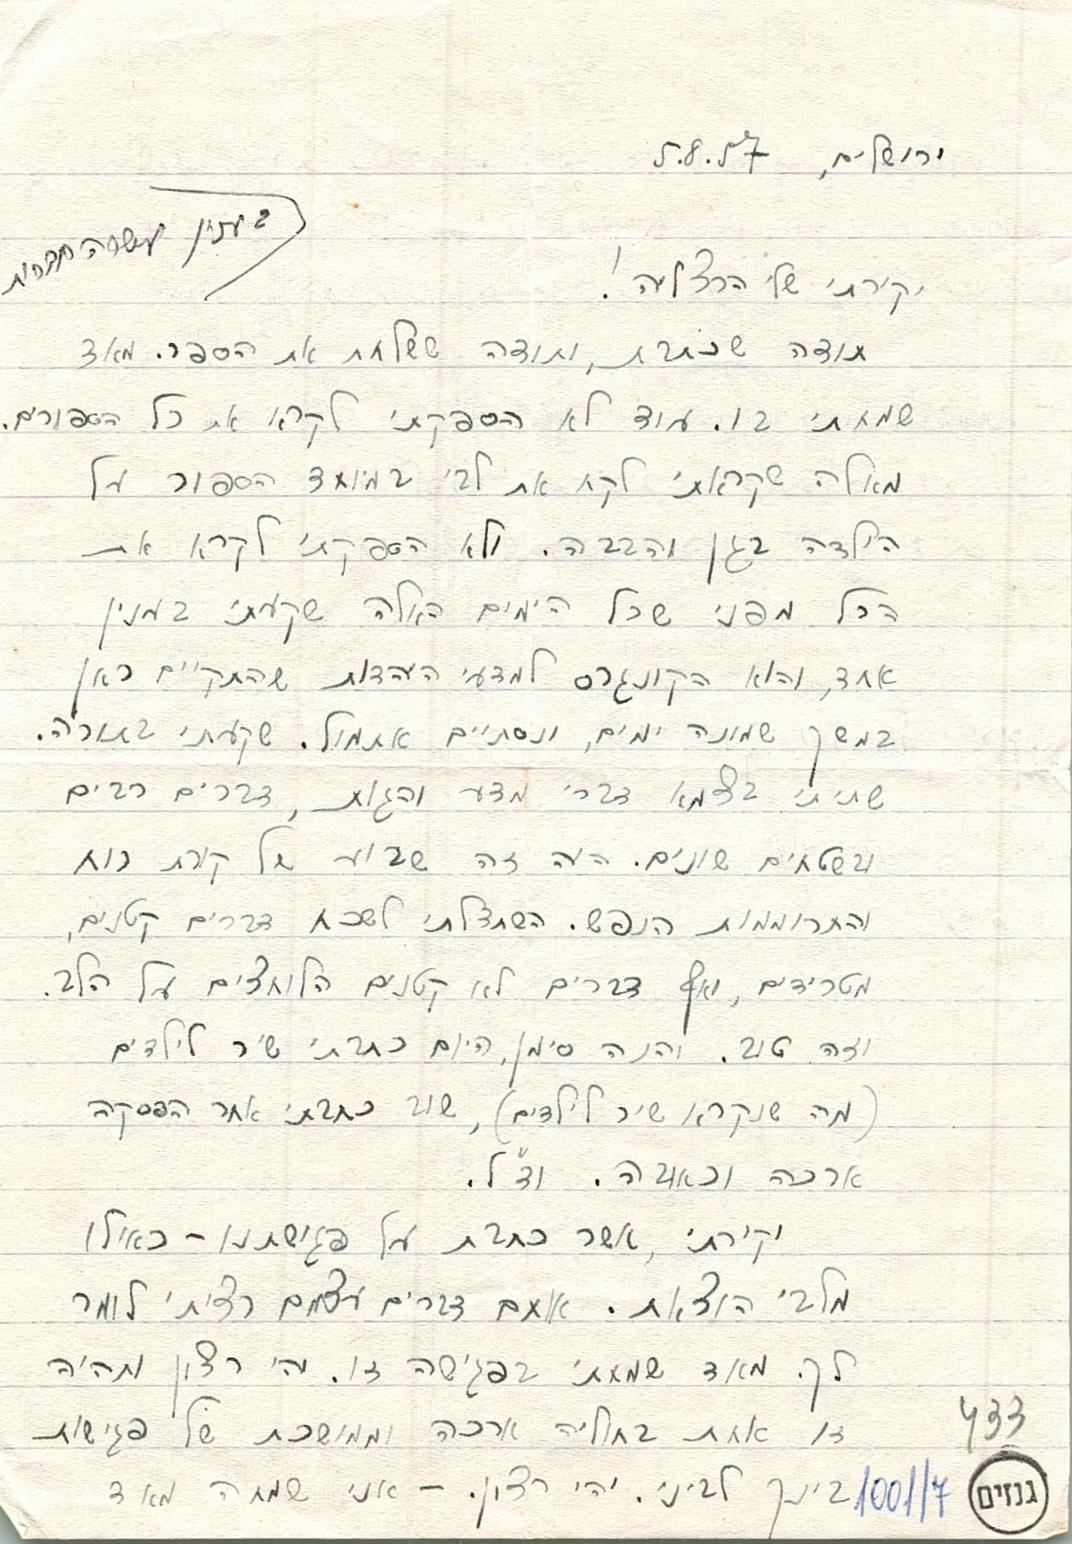 ירושלים, 5.8.57
בענין עשרה חרוזים
יקירתי שלי הרצליה!
תודה שכתבת, ותודה ששלחת את הספר. מאד
שמחתי בו. עוד לא הספקתי לקרא את כל הספורים.
מאלה שקראתי לקח את לבי במיוחד הספור על
הילדה בגן והבבה. ולא הספקתי לקרא את
הכל מפני שכל הימים האלה שקעתי בענין
אחד, והוא הקונגרס למדעי היהדות שהתקיים כאן
במשך שמונה ימים, ונסתיים אתמול. שקעתי בתורה.
שתיתי בצמא דברי מדע והגות, דברים רבים
ובשטחים שונים. היה זה שבוע של קורת רוח
והתרוממות הנפש. השתדלתי לשכח דברים קטנים,
מטרידים, ואף דברים לא קטנים הלוחצים על הלב.
וזה טוב. והנה סימן, היום כתבתי שיר לילדים
(מה שנקרא שיר לילדים), שוב כתבתי אחר הפסקה
ארכה וכאובה. וצ"ל.
יקירתי, אשר כתבת על פגישתנו – כאילו
מלבי הוצאת. אותם דברים עצמם רציתי לומר
לך. מאד שמחתי בפגישה זו. יהי רצון ותהיה
זו אחת בחוליה ארכה וממושכת של פגישות
בינך לביני. יהי רצון. – אני שמחה מאד
433
1001/7
גנזים